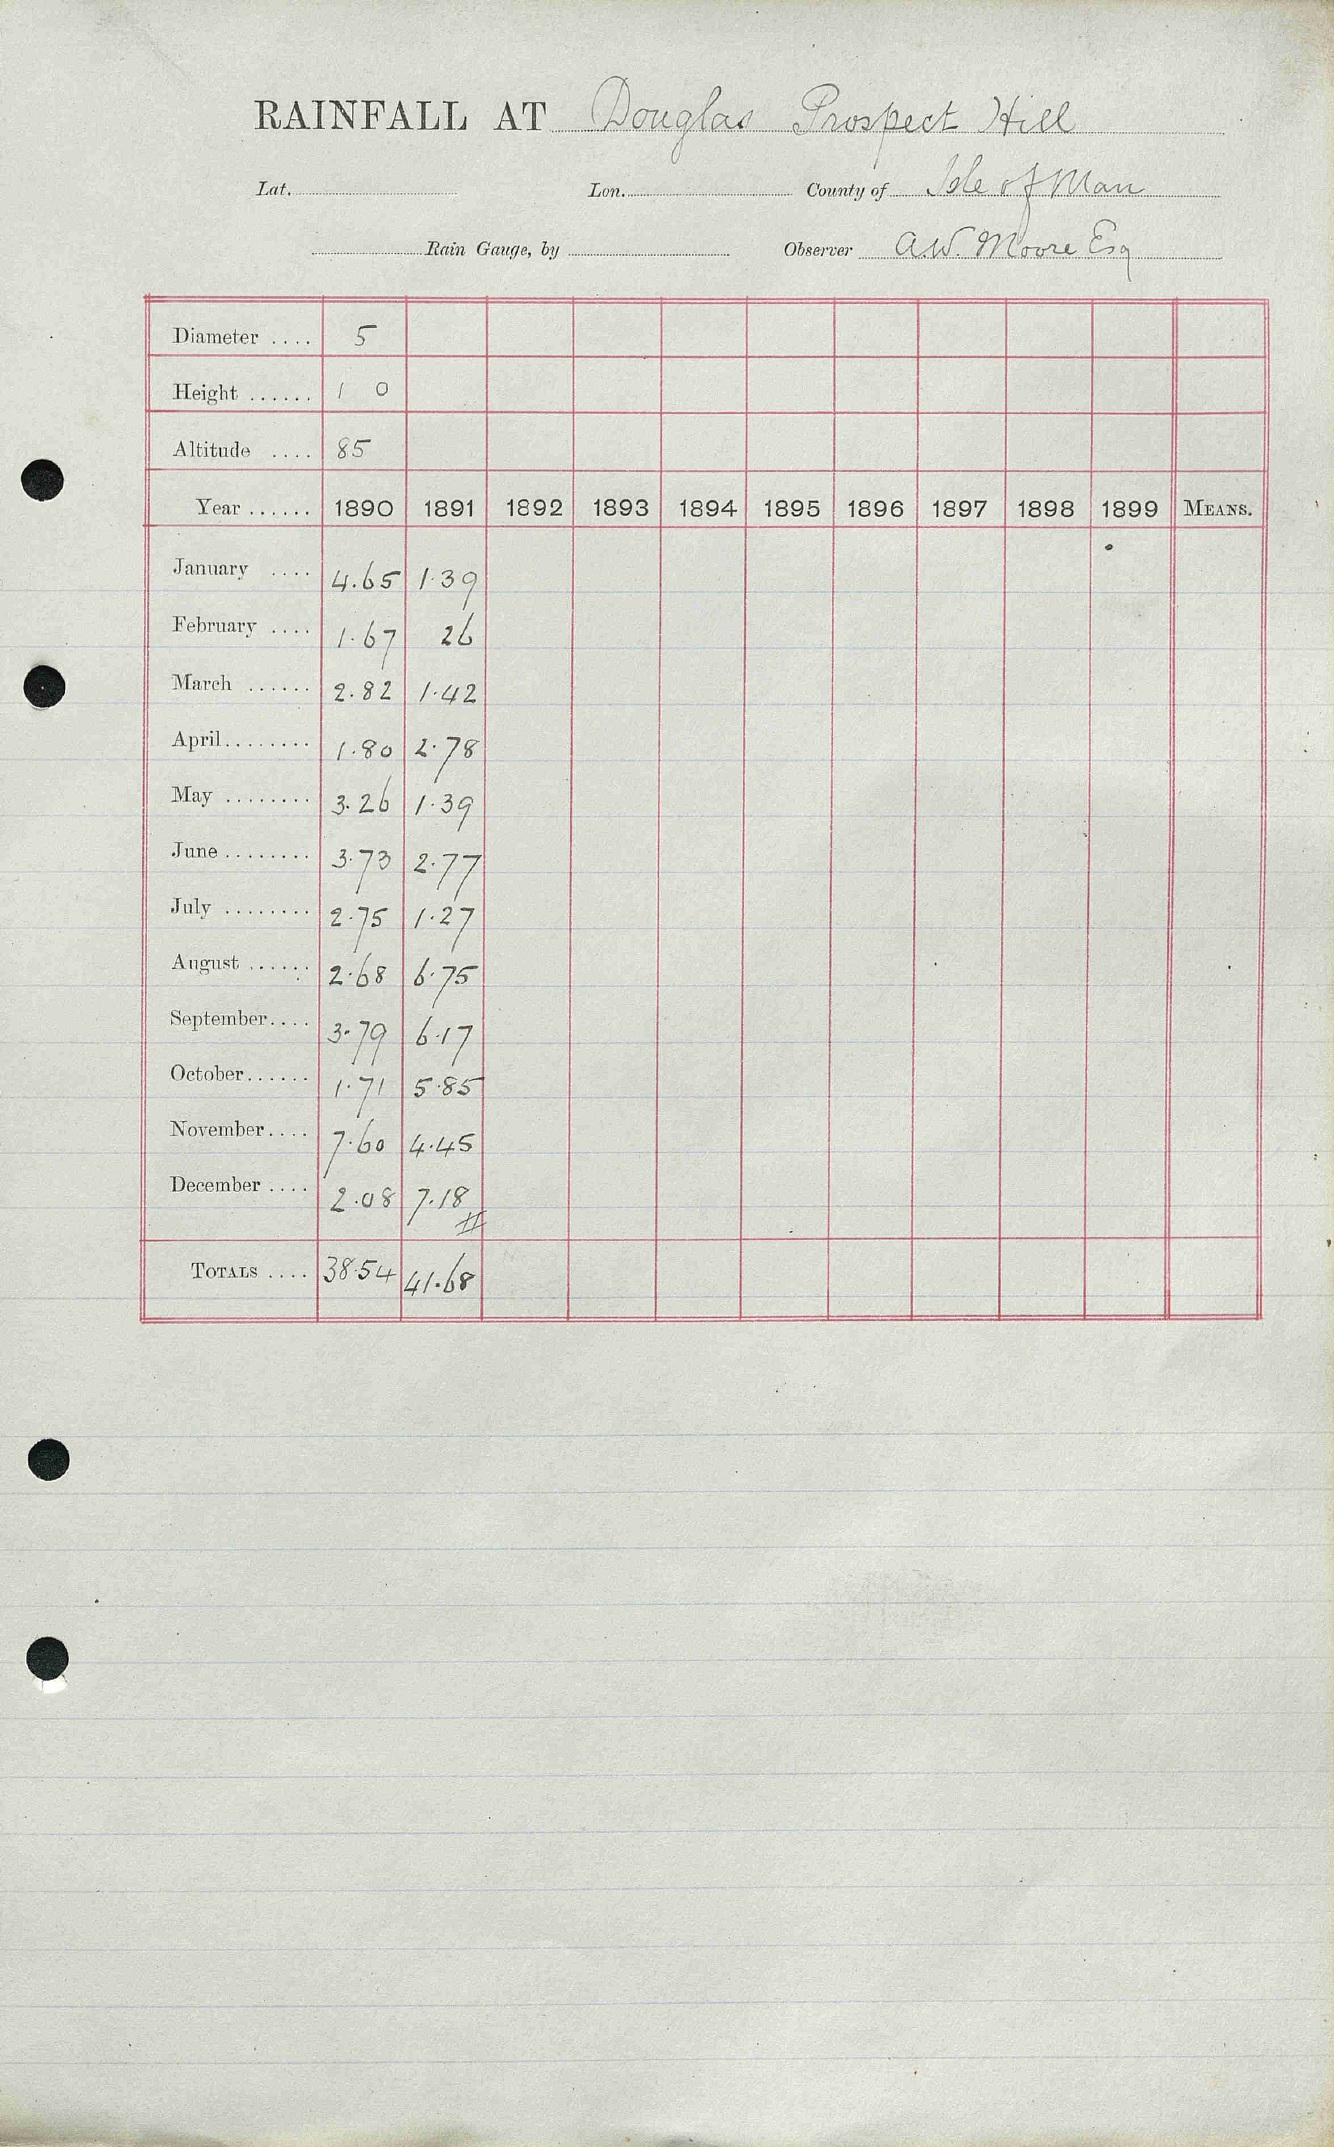 RAINFALL AT Douglas Prospect Hill
Lat. Lon. County of Isle of Man
Rain Gauge, by Observer A.W. Moore Esq
Diameter .... 5
Height ...... 1 0
Altitude .... 85
Year ...... 1890 1891 1892 1893 1894 1895 1896 1897 1898 1899 MEANS.
January .... 4.65 1.39
February .... 1.67 26
March ...... 2.82 1.42
April........ 1.80 2.78
May ........ 3.26 1.39
June ........ 3.73 2.77
July ........ 2.75 1.27
August ...... 2.68 6.75
September.... 3.79 6.17
October...... 1.71 5.85
November.... 7.60 4.45
December .... 2.08 7.18
TOTALS .... 38.54 41.68